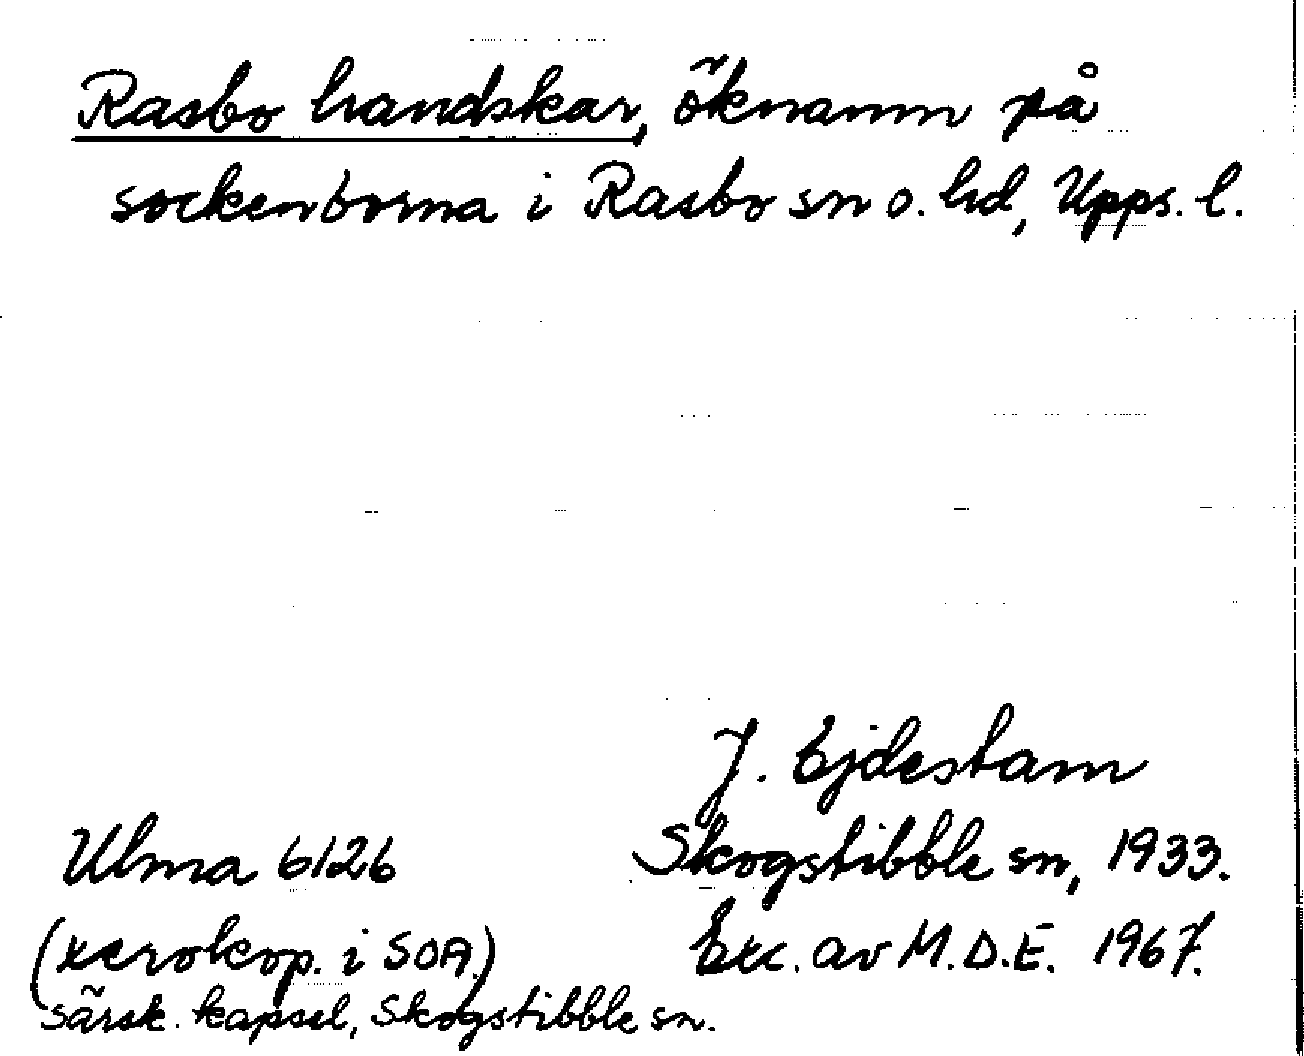 Rasbo handskar, öknamn på
sockenborna i Rasbo sn o. hd, Upps. l.
J. Ejdestam
Ulma 6126
Skogstibble sn, 1933.
(xerokop. i SOA.)
Exc. av M.D.E. 1967.
särsk. kapsel, Skogstibble sn.